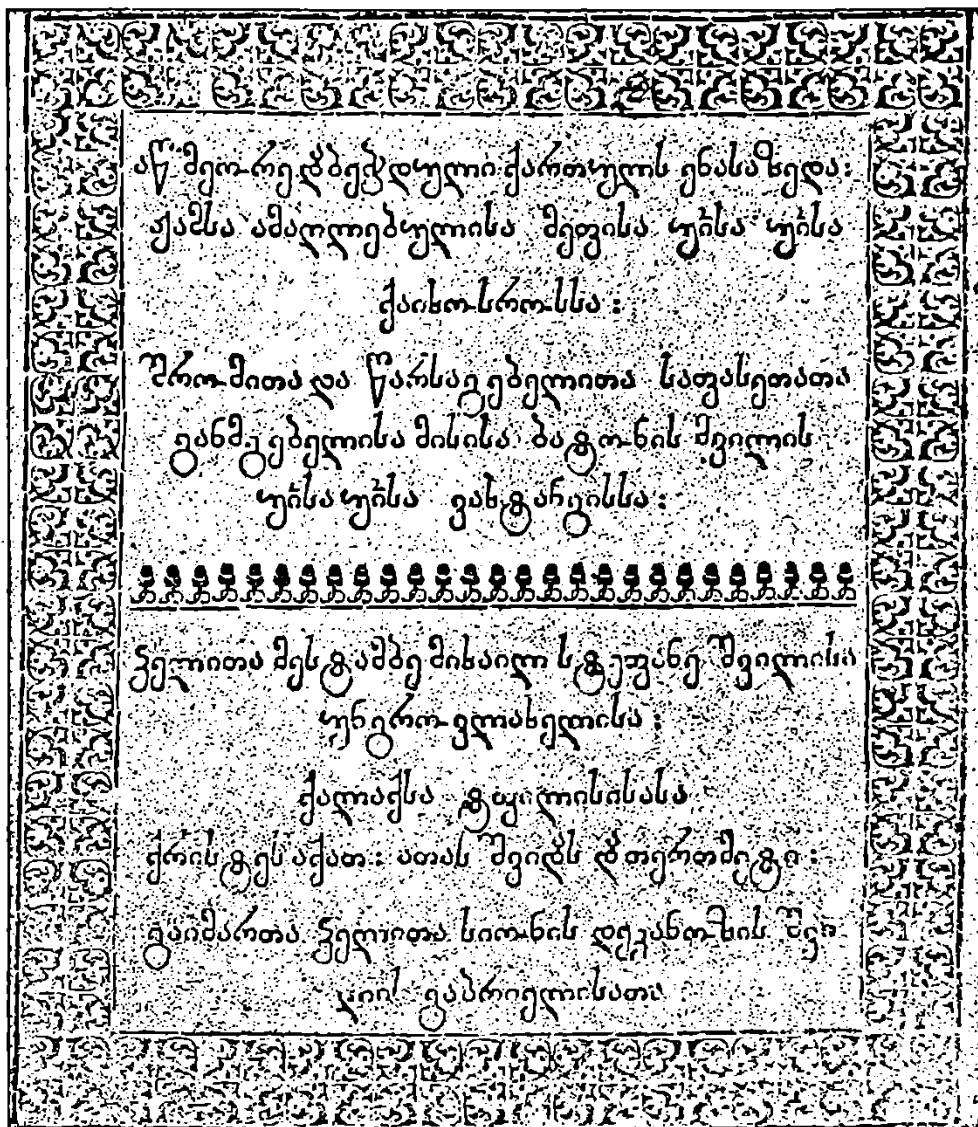 აწ მეორედ ბეჭდული ქართულის ენასა ზედა:
ჟამსა ამაღლებულისა მეფისა უ̃ისა უ̃ისა
ქაიხოსროსსა :
შრომითა და წარსაგებელითა საფასეთათა
განმგებელისა მისისა ბატონის შვილის
უ̃ისა უ̃ისა ვახტანგისსა :
ჴელითა მესტამბე მიხაილ სტეფანე შვილისა
უნგროვლახელისა :
ქალაქსა ტფილისისასა
ქრისტეს აქათ : ათას შვიდს და თერთმეტი :
გაიმართა ჴელითა სიონის დეკანოზის შვი
ლის გაბრიელისათა